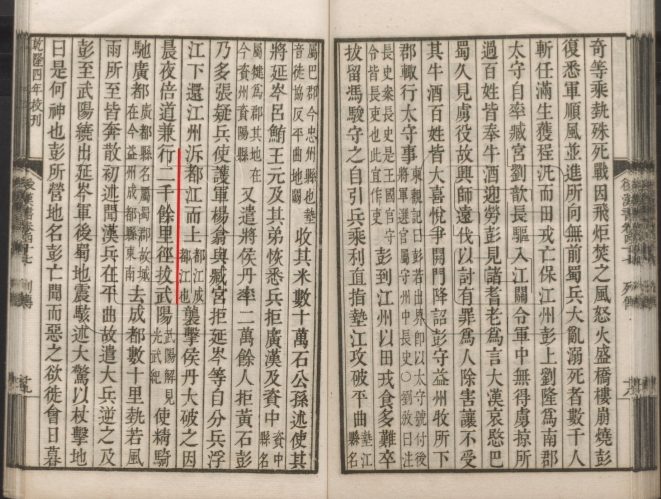 奇等乘埶殊死戰因飛炬焚之風怒火盛橋樓崩燒彭
復悉軍順風並進所向無前蜀兵大亂溺死者數千人
斬任滿生獲程汎而田戎亡保江州彭上劉隆爲南郡
太守自率臧宮劉歆長驅入江關令軍中無得虜掠所
過百姓皆奉牛酒迎勞彭見諸耆老爲言大漢哀愍巴
蜀久見虜役故興師遠伐以討有罪爲人除害讓不受
其牛酒百姓皆大喜悅爭開門降詔彭守益州牧所下
郡輒行太守事東觀記曰彭若出界即以太守號付後將軍選官屬守州中長史○劉攽曰注
長史案長史是王國官守令皆長吏也此宜作吏彭到江州以田戎食多難卒
拔留馮駿守之自引兵乘利直指墊江攻破平曲墊江縣名
後漢書卷四十七 列傳
屬巴郡今忠州縣也墊音徒協反平曲地闕收其米數十萬石公孫述使其
將延岑呂鮪王元及其弟恢悉兵拒廣漢及資中資中縣名
屬犍爲郡其地在今資州資陽縣又遣將侯丹率二萬餘人拒黃石彭
乃多張疑兵使護軍楊翕與臧宮拒延岑等自分兵浮
江下還江州泝都江而上都江成都江也襲擊侯丹大破之因
晨夜倍道兼行二千餘里徑拔武陽武陽解見光武紀使精騎
馳廣都廣都縣名屬蜀郡故城在今益州成都縣東南去成都數十里埶若風
雨所至皆奔散初述聞漢兵在平曲故遣大兵逆之及
彭至武陽繞出延岑軍後蜀地震駭述大驚以杖擊地
曰是何神也彭所營地名彭亡聞而惡之欲徙會日暮
乾隆四年校刊
後漢書卷四十七 列傳